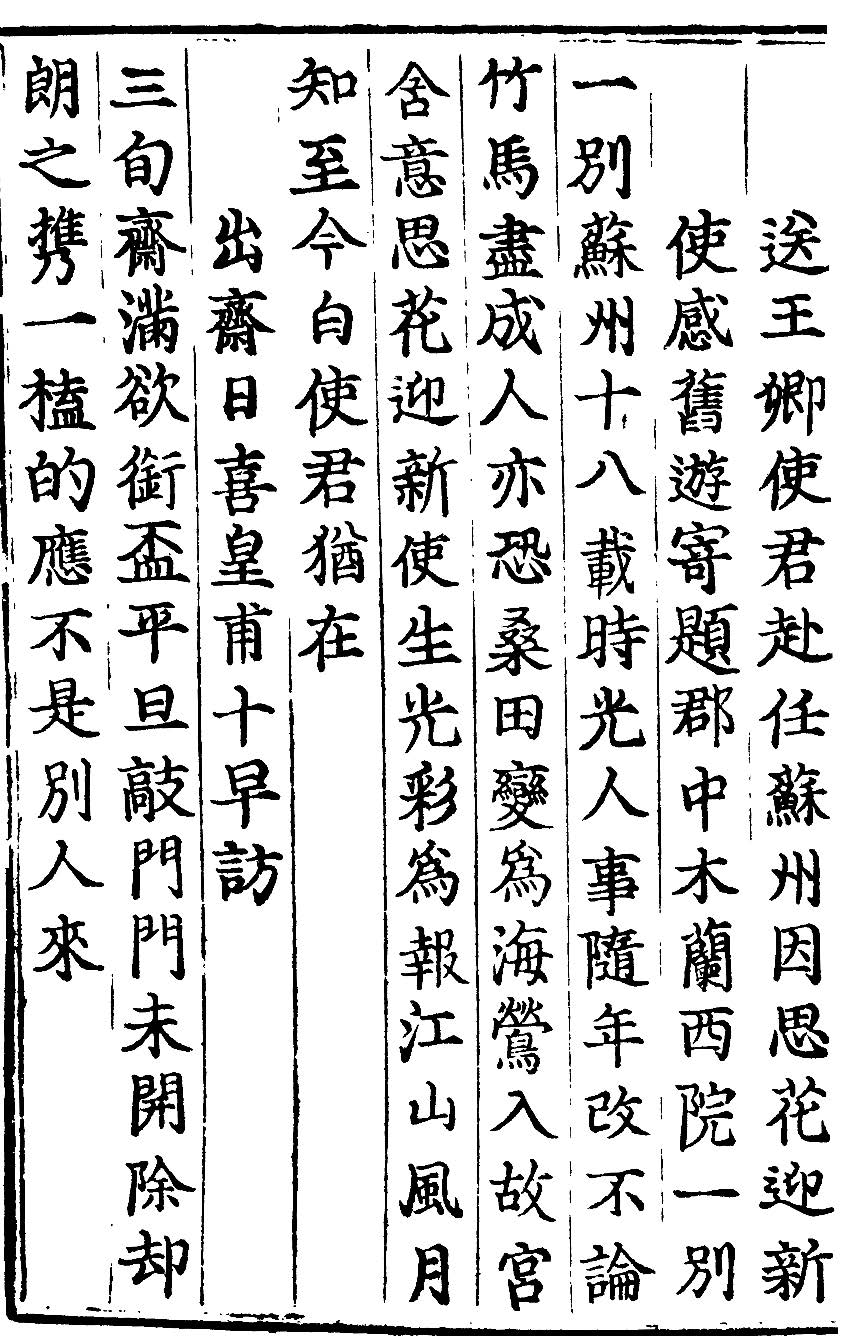 送王卿使君赴任蘇州因思花迎新
使感舊遊寄題郡中木蘭西院一別
一別蘇州十八載時光人事隨年改不論
竹馬盡成人亦恐桑田變爲海鶯入故宮
含意思花迎新使生光彩爲報江山風月
知至今白使君猶在
出齋日喜皇甫十早訪
三旬齋滿欲銜盃平旦敲門門未開除却
朗之携一榼的應不是別人來